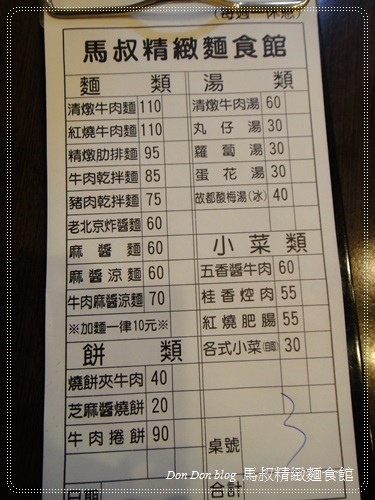 (每週一休息)
馬叔精緻麵食館
麵類
清燉牛肉麵 110
紅燒牛肉麵 110
精燉肋排麵 95
牛肉乾拌麵 85
豬肉乾拌麵 75
老北京炸醬麵 60
麻醬麵 60
麻醬涼麵 60
牛肉麻醬涼麵 70
※加麵一律10元※
餅類
燒餅夾牛肉 40
芝麻醬燒餅 20
牛肉捲餅 90
湯類
清燉牛肉湯 60
丸仔湯 30
蘿蔔湯 30
蛋花湯 30
故都酸梅湯(冰) 40
小菜類
五香醬牛肉 60
桂香焢肉 55
紅燒肥腸 55
各式小菜 30
桌號
日期
合計
Don Don blog 馬叔精緻麵食館